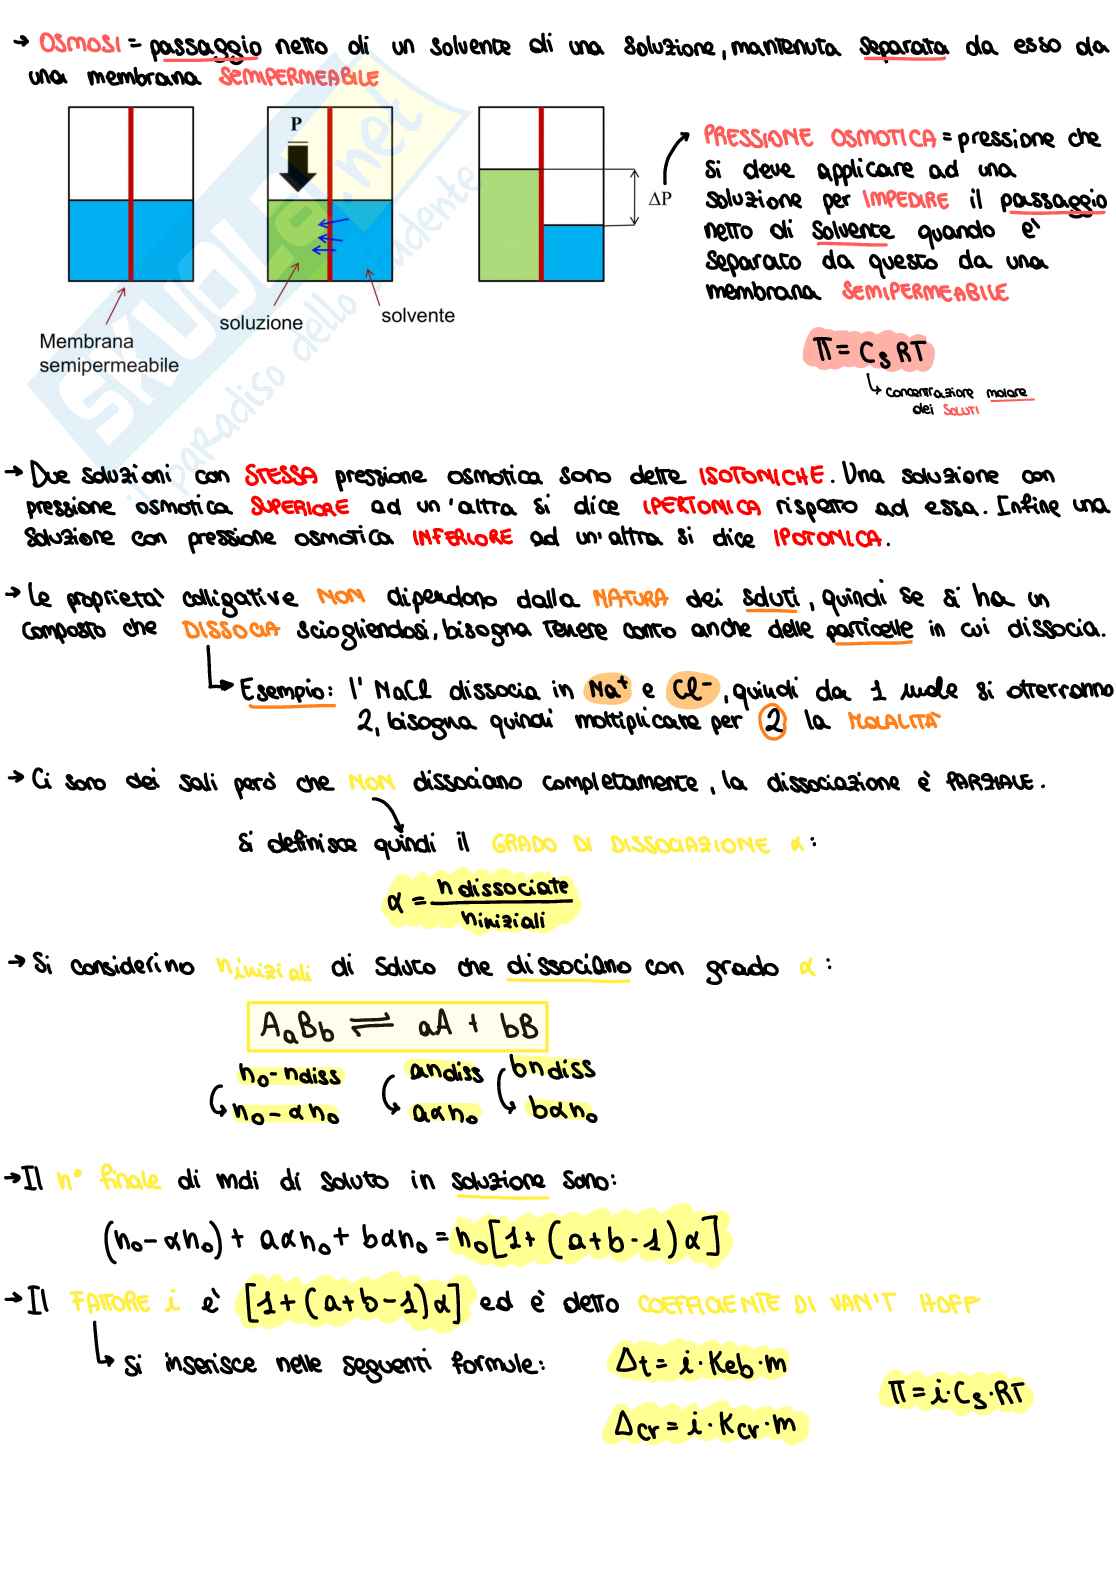 → OSMOSI = passaggio netto di un solvente di una soluzione, mantenuta separata da esso da
una membrana SEMIPERMEABILE
P
ΔP
Membrana
semipermeabile
soluzione
solvente
PRESSIONE OSMOTICA = pressione che
si deve applicare ad una
soluzione per IMPEDIRE il passaggio
netto di solvente quando è
separato da questo da una
membrana SEMIPERMEABILE
π = Cs RT
concentrazione molare
dei SOLUTI
SKUOLA.net
il paradiso dello studente
→ Due soluzioni con STESSA pressione osmotica sono dette ISOTONICHE. Una soluzione con
pressione osmotica SUPERIORE ad un'altra si dice IPERTONICA rispetto ad essa. Infine una
soluzione con pressione osmotica INFERIORE ad un'altra si dice IPOTONICA.
→ Le proprietà colligative NON dipendono dalla NATURA dei soluti, quindi se si ha un
composto che DISSOCIA sciogliendosi, bisogna tenere conto anche delle particelle in cui dissocia.
Esempio: l'NaCl dissocia in Na⁺ e Cl⁻, quindi da 1 mole si otterranno
2, bisogna quindi moltiplicare per 2 la MOLALITÀ
→ Ci sono dei sali però che NON dissociano completamente, la dissociazione è PARZIALE.
Si definisce quindi il GRADO DI DISSOCIAZIONE α:
α = n dissociate / n iniziali
→ Si considerino n iniziali di soluto che dissociano con grado α:
AaBb ⇌ aA + bB
n₀ - ndiss andiss bndiss
n₀ - αn₀ aαn₀ bαn₀
→ Il n° finale di moli di soluto in soluzione sono:
(n₀ - αn₀) + aαn₀ + bαn₀ = n₀[1 + (a + b - 1)α]
→ Il FATTORE i è [1 + (a + b - 1)α] ed è detto COEFFICIENTE DI VAN'T HOFF
si inserisce nelle seguenti formule:
Δt = i · Keb · m
π = i · Cs · RT
Δcr = i · Kcr · m